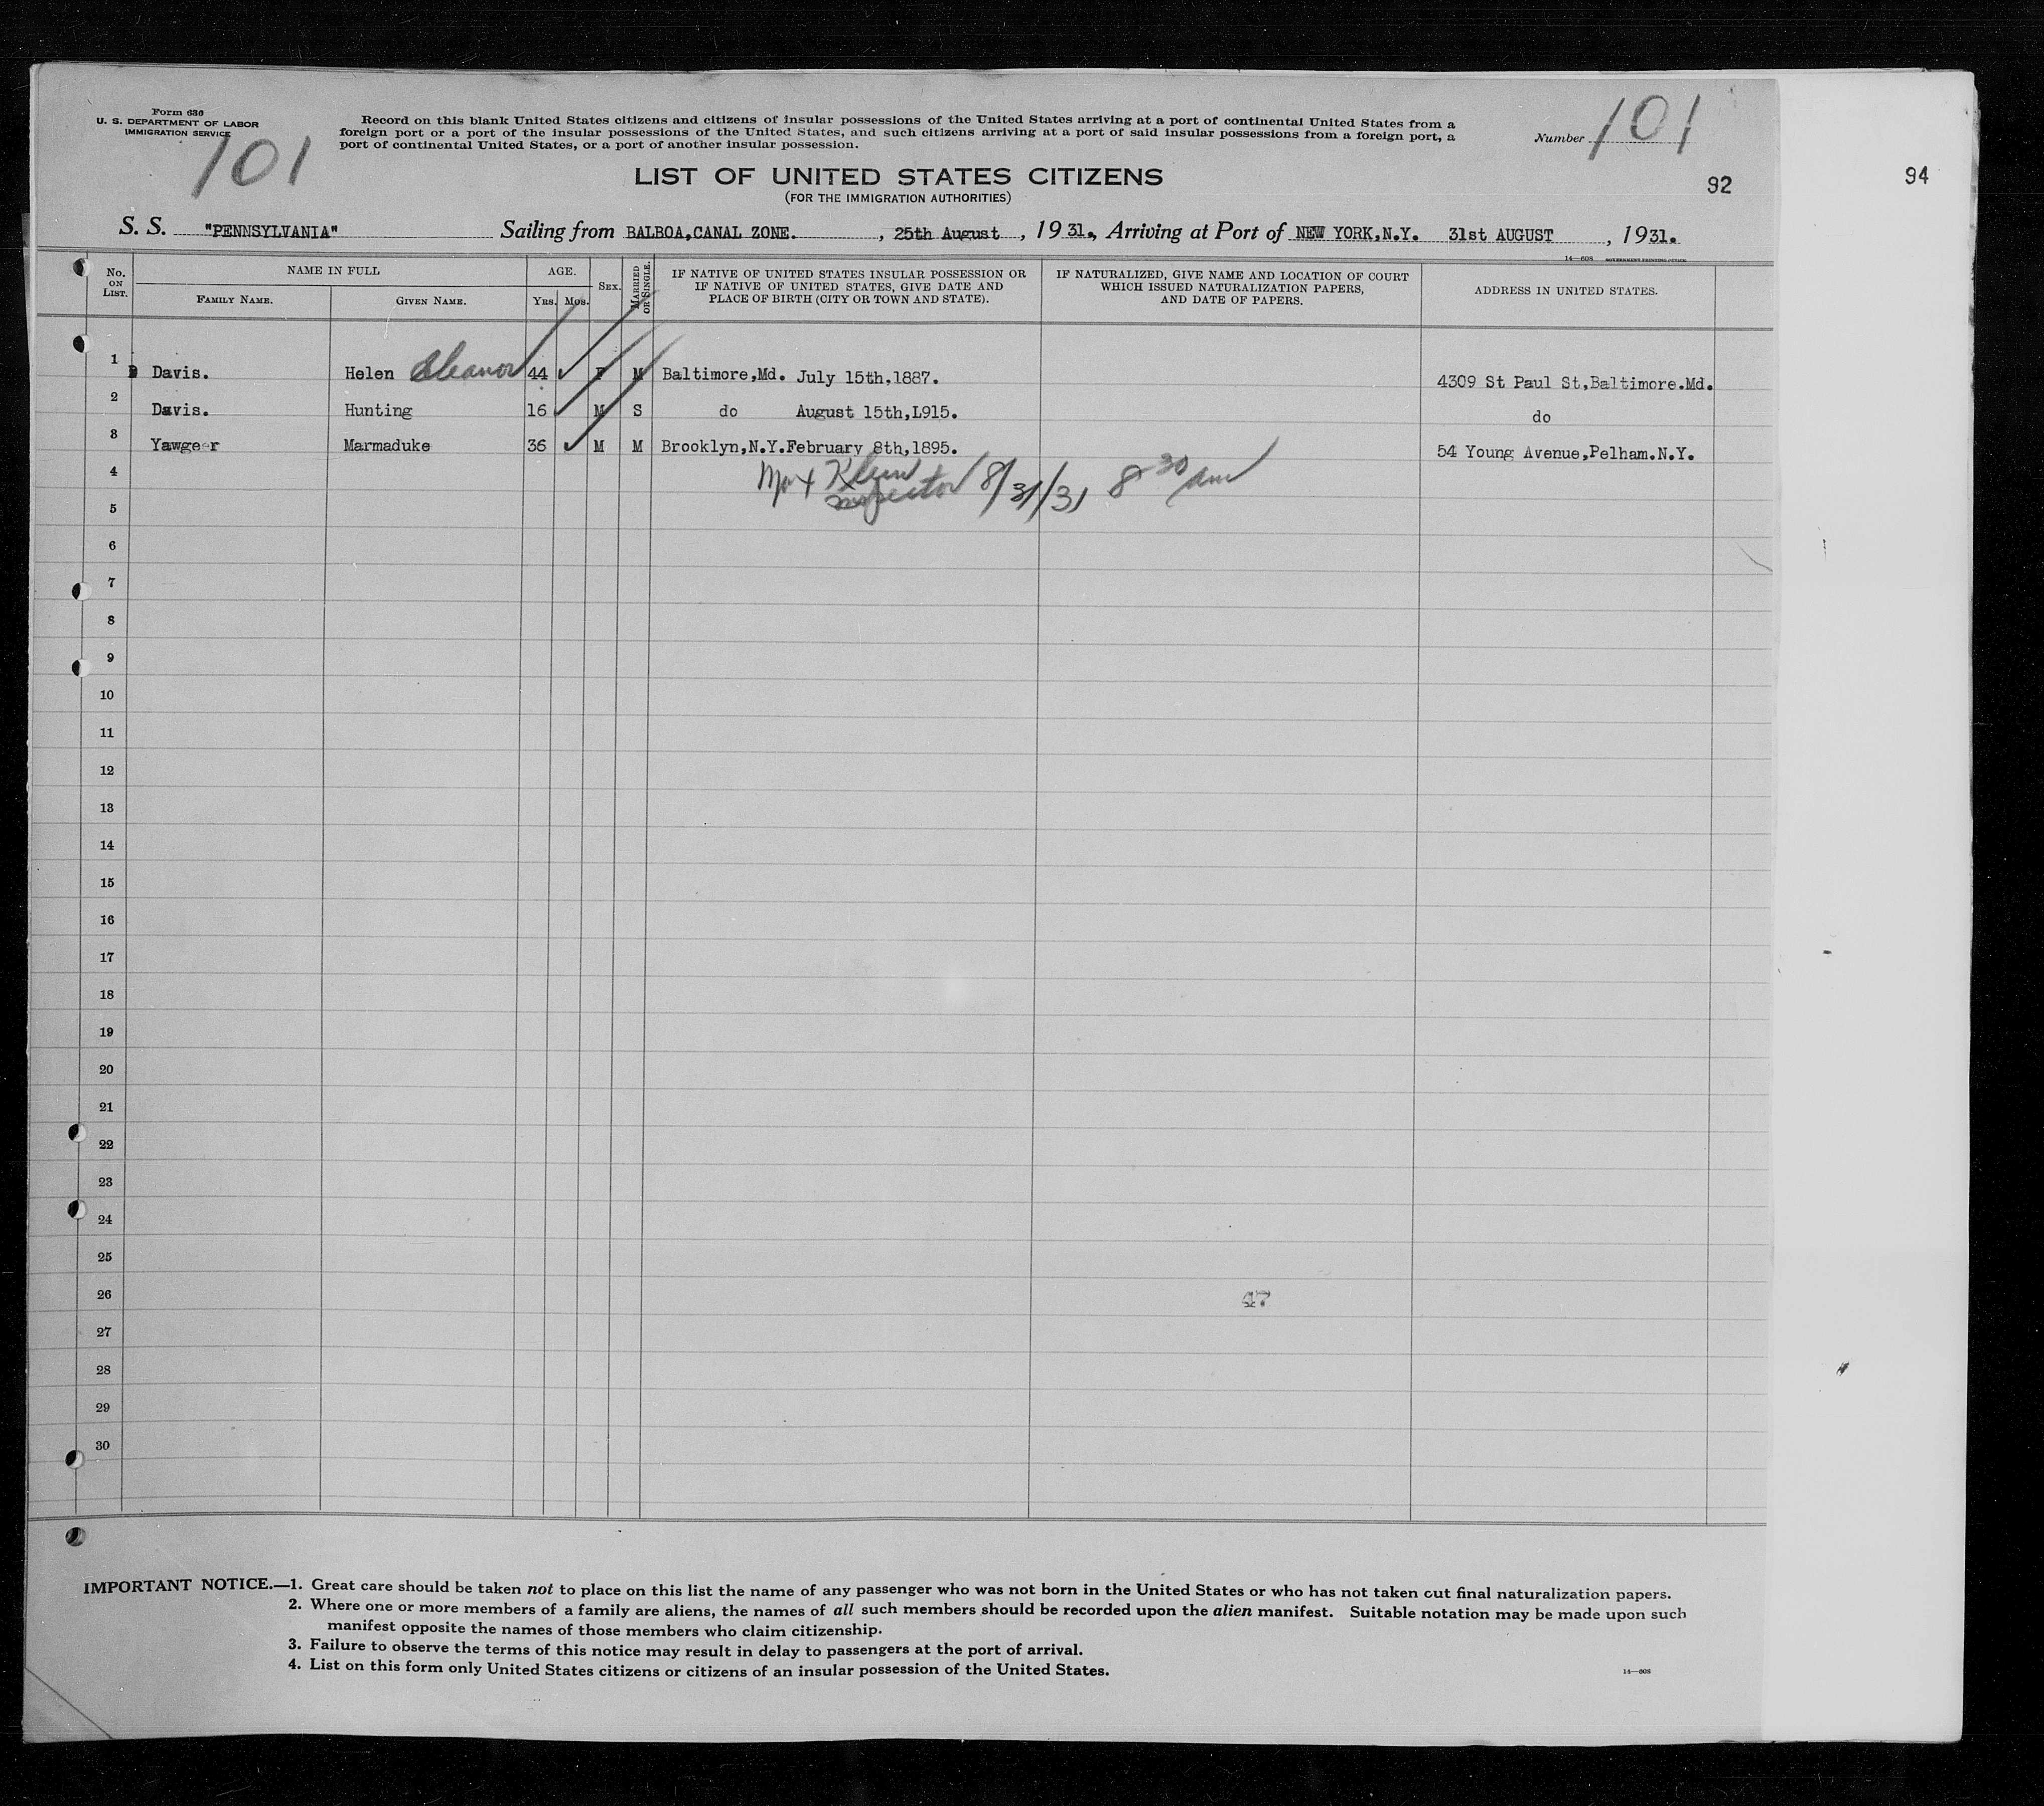 Form 636
U. S. DEPARTMENT OF LABOR
IMMIGRATION SERVICE
101
Record on this blank United States citizens and citizens of insular possessions of the United States arriving at a port of continental United States from a
foreign port or a port of the insular possessions of the United States, and such citizens arriving at a port of said insular possessions from a foreign port, a
port of continental United States, or a port of another insular possession.
Number 101
LIST OF UNITED STATES CITIZENS
(FOR THE IMMIGRATION AUTHORITIES)
92
94
S. S. "PENNSYLVANIA" Sailing from BALBOA,CANAL ZONE. , 25th August , 1931., Arriving at Port of NEW YORK,N.Y. 31st AUGUST , 1931.
14—608 GOVERNMENT PRINTING OFFICE
No. ON LIST. NAME IN FULL FAMILY NAME. GIVEN NAME. AGE. YRS. MOS. SEX. MARRIED OR SINGLE. IF NATIVE OF UNITED STATES INSULAR POSSESSION OR IF NATIVE OF UNITED STATES, GIVE DATE AND PLACE OF BIRTH (CITY OR TOWN AND STATE). IF NATURALIZED, GIVE NAME AND LOCATION OF COURT WHICH ISSUED NATURALIZATION PAPERS, AND DATE OF PAPERS. ADDRESS IN UNITED STATES.
1 Davis. Helen Eleanor 44 F M Baltimore,Md. July 15th,1887. 4309 St Paul St,Baltimore.Md.
2 Davis. Hunting 16 M S do August 15th,L915. do
3 Yawgeer Marmaduke 36 M M Brooklyn,N.Y.February 8th,1895. 54 Young Avenue,Pelham.N.Y.
4 Max Klein
Inspector 8/31/31 8 30 am
5
6
7
8
9
10
11
12
13
14
15
16
17
18
19
20
21
22
23
24
25
26 47
27
28
29
30
IMPORTANT NOTICE.—1. Great care should be taken not to place on this list the name of any passenger who was not born in the United States or who has not taken out final naturalization papers.
2. Where one or more members of a family are aliens, the names of all such members should be recorded upon the alien manifest. Suitable notation may be made upon such
manifest opposite the names of those members who claim citizenship.
3. Failure to observe the terms of this notice may result in delay to passengers at the port of arrival.
4. List on this form only United States citizens or citizens of an insular possession of the United States.
14—608